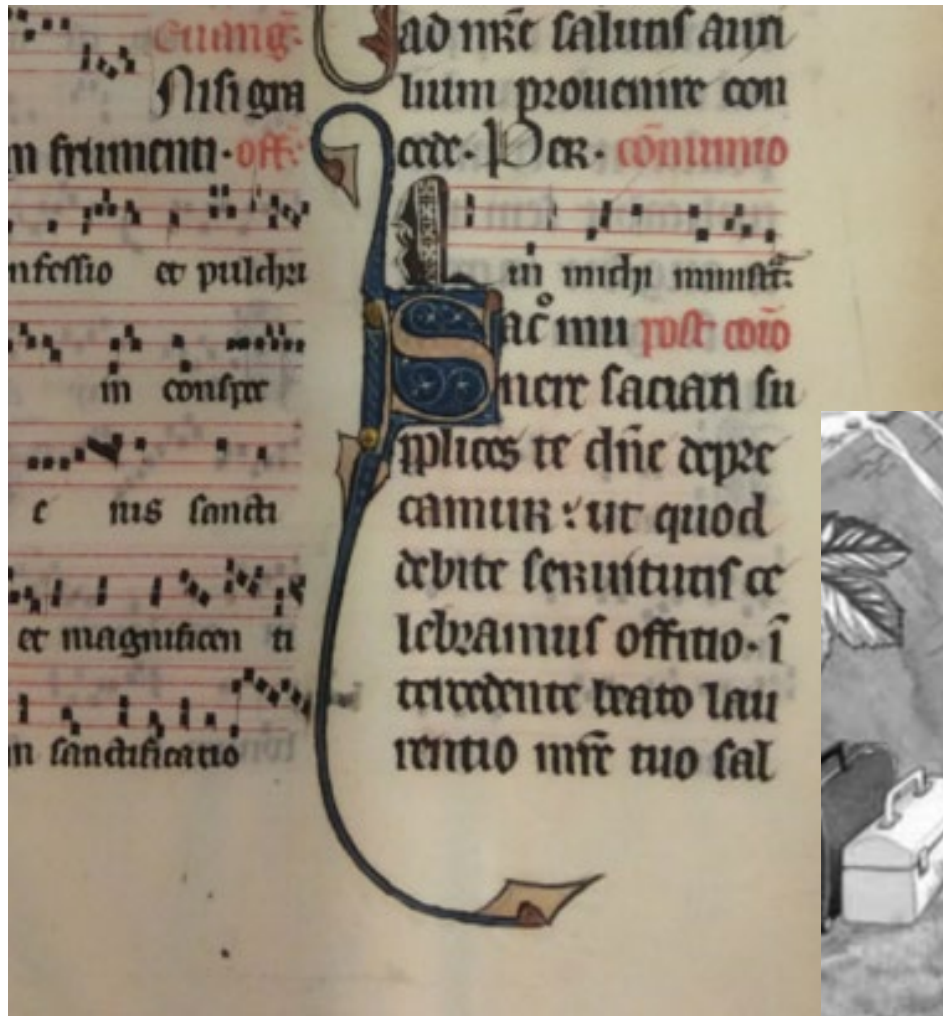 euang̅.
Nisi gra
m frumenti · off̅:
nfessio et pulchri
in conspec
e nis sancti
et magnificen ti
in sanctificatio
ad nr̅e salutis auxi
lium prouenire con
cede · Per · co̅munio
ui michi ministr̅:
ac̊ mu post com̅o
acri saciati su
pplices te dn̅e depre
camur : ut quod
debite seruitutis ce
lebramus offitio · i̅
tercedente beato lau
rentio mr̅e tuo sal